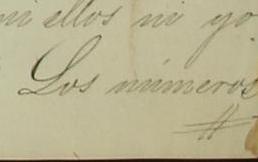 ni ellos ni yo
Los números